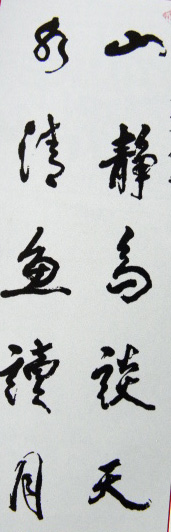 山靜鳥談天
水清魚讀月